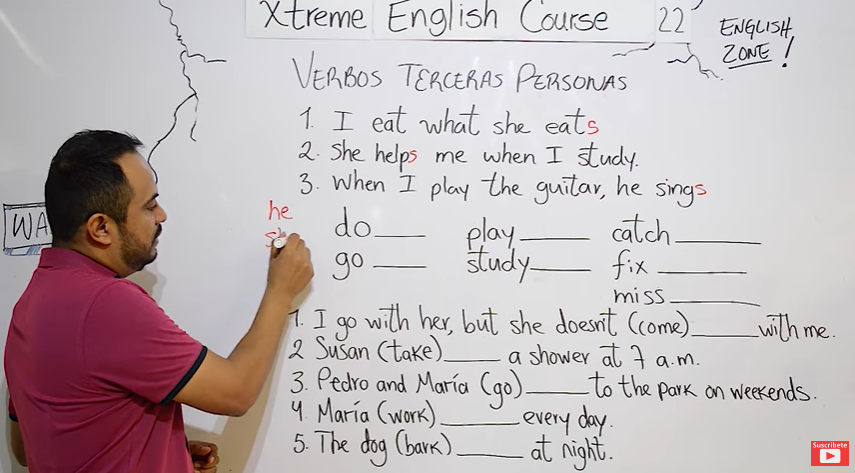 Xtreme English Course 22
ENGLISH ZONE!
VERBOS TERCERAS PERSONAS
1. I eat what she eats
2. She helps me when I study.
3. When I play the guitar, he sings
WA
he
do____ play____ catch____
go____ study____ fix____
miss____
1. I go with her, but she doesn't (come)____with me.
2 Susan (take)____ a shower at 7 a.m.
3. Pedro and María (go)____ to the park on weekends.
4. María (work)____ every day.
5. The dog (bark)____ at night.
Suscríbete